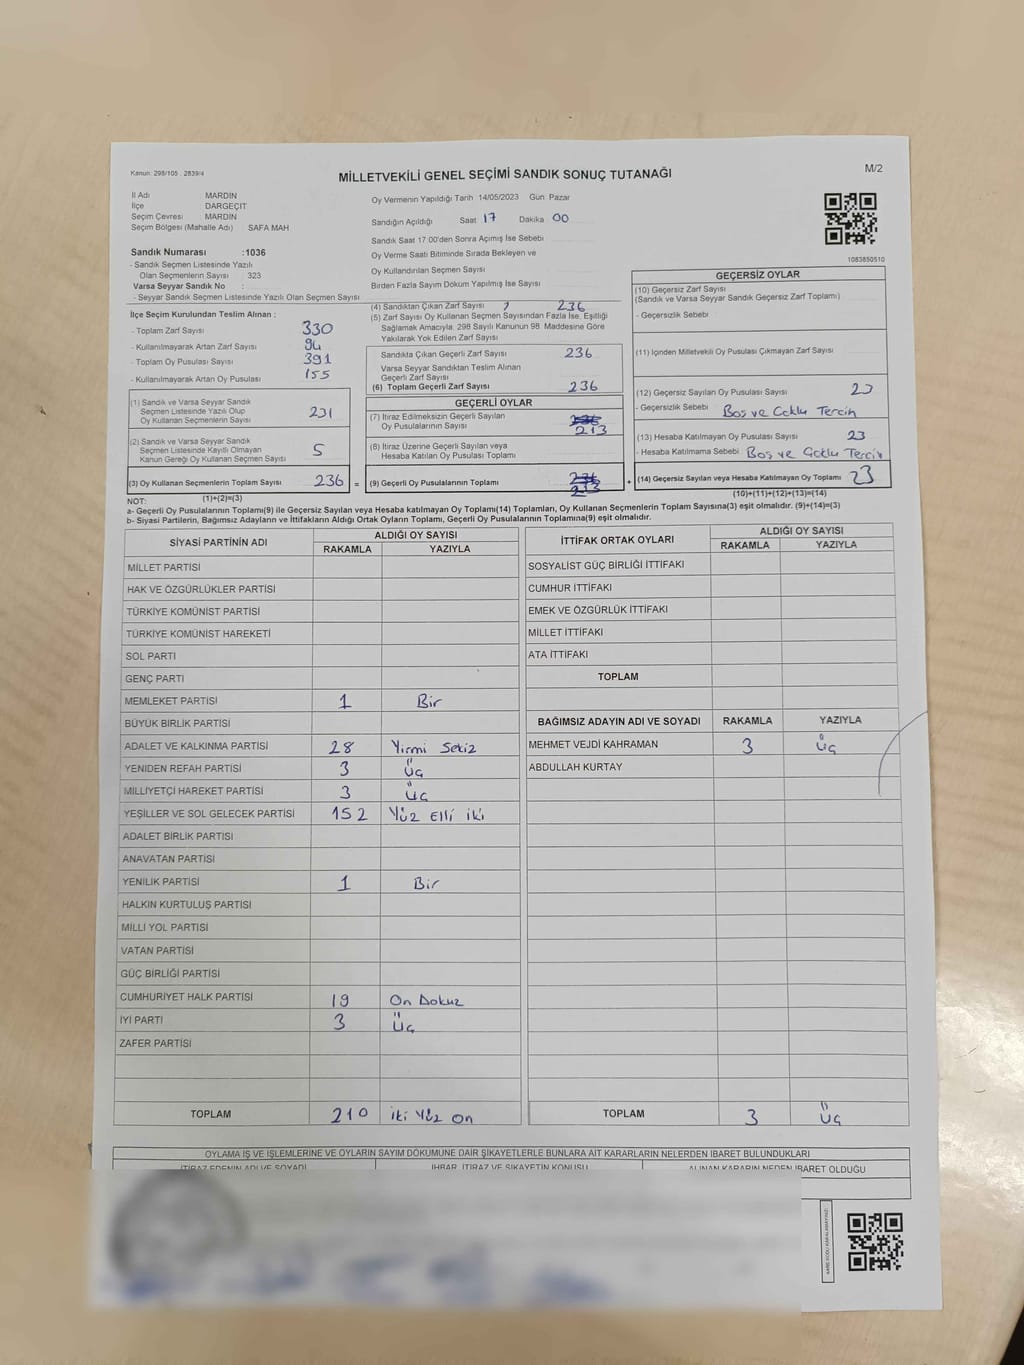 Kanun: 298/105 . 2839/4
MİLLETVEKİLİ GENEL SEÇİMİ SANDIK SONUÇ TUTANAĞI
M/2
İl Adı MARDİN
İlçe DARGEÇİT
Seçim Çevresi MARDİN
Seçim Bölgesi (Mahalle Adı) SAFA MAH
Sandık Numarası :1036
- Sandık Seçmen Listesinde Yazılı
Olan Seçmenlerin Sayısı : 323
Varsa Seyyar Sandık No :
- Seyyar Sandık Seçmen Listesinde Yazılı Olan Seçmen Sayısı
Oy Vermenin Yapıldığı Tarih 14/05/2023 Gün: Pazar
Sandığın Açıldığı Saat 17 Dakika 00
Sandık Saat 17.00'den Sonra Açımış İse Sebebi
Oy Verme Saati Bitiminde Sırada Bekleyen ve
Oy Kullandırılan Seçmen Sayısı
Birden Fazla Sayım Döküm Yapılmış İse Sayısı
1083850510
İlçe Seçim Kurulundan Teslim Alınan :
- Toplam Zarf Sayısı 330
- Kullanılmayarak Artan Zarf Sayısı 94
- Toplam Oy Pusulası Sayısı 391
- Kullanılmayarak Artan Oy Pusulası 155
(1) Sandık ve Varsa Seyyar Sandık
Seçmen Listesinde Yazılı Olup
Oy Kullanan Seçmenlerin Sayısı 231
(2) Sandık ve Varsa Seyyar Sandık
Seçmen Listesinde Kayıtlı Olmayan
Kanun Gereği Oy Kullanan Seçmen Sayısı 5
(3) Oy Kullanan Seçmenlerin Toplam Sayısı 236 =
(1)+(2)=(3)
(4) Sandıktan Çıkan Zarf Sayısı 236
(5) Zarf Sayısı Oy Kullanan Seçmen Sayısından Fazla İse, Eşitliği
Sağlamak Amacıyla, 298 Sayılı Kanunun 98. Maddesine Göre
Yakılarak Yok Edilen Zarf Sayısı
Sandıkta Çıkan Geçerli Zarf Sayısı 236
Varsa Seyyar Sandıktan Teslim Alınan
Geçerli Zarf Sayısı
(6) Toplam Geçerli Zarf Sayısı 236
GEÇERLİ OYLAR
(7) İtiraz Edilmeksizin Geçerli Sayılan
Oy Pusulalarının Sayısı 236 213
(8) İtiraz Üzerine Geçerli Sayılan veya
Hesaba Katılan Oy Pusulası Toplamı
(9) Geçerli Oy Pusulalarının Toplamı 236 213 +
GEÇERSİZ OYLAR
(10) Geçersiz Zarf Sayısı
(Sandık ve Varsa Seyyar Sandık Geçersiz Zarf Toplamı)
- Geçersizlik Sebebi
(11) İçinden Milletvekili Oy Pusulası Çıkmayan Zarf Sayısı
(12) Geçersiz Sayılan Oy Pusulası Sayısı 23
- Geçersizlik Sebebi Boş ve Çoklu Tercih
(13) Hesaba Katılmayan Oy Pusulası Sayısı 23
- Hesaba Katılmama Sebebi Boş ve Çoklu Tercih
(14) Geçersiz Sayılan veya Hesaba Katılmayan Oy Toplamı 23
(10)+(11)+(12)+(13)=(14)
NOT:
a- Geçerli Oy Pusulalarının Toplamı(9) ile Geçersiz Sayılan veya Hesaba katılmayan Oy Toplamı(14) Toplamları, Oy Kullanan Seçmenlerin Toplam Sayısına(3) eşit olmalıdır. (9)+(14)=(3)
b- Siyasi Partilerin, Bağımsız Adayların ve İttifakların Aldığı Ortak Oyların Toplamı, Geçerli Oy Pusulalarının Toplamına(9) eşit olmalıdır.
SİYASİ PARTİNİN ADI ALDIĞI OY SAYISI
RAKAMLA YAZIYLA
MİLLET PARTİSİ
HAK VE ÖZGÜRLÜKLER PARTİSİ
TÜRKİYE KOMÜNİST PARTİSİ
TÜRKİYE KOMÜNİST HAREKETİ
SOL PARTİ
GENÇ PARTİ
MEMLEKET PARTİSİ 1 Bir
BÜYÜK BİRLİK PARTİSİ
ADALET VE KALKINMA PARTİSİ 28 Yirmi Sekiz
YENİDEN REFAH PARTİSİ 3 Üç
MİLLİYETÇİ HAREKET PARTİSİ 3 Üç
YEŞİLLER VE SOL GELECEK PARTİSİ 152 Yüz Elli iki
ADALET BİRLİK PARTİSİ
ANAVATAN PARTİSİ
YENİLİK PARTİSİ 1 Bir
HALKIN KURTULUŞ PARTİSİ
MİLLİ YOL PARTİSİ
VATAN PARTİSİ
GÜÇ BİRLİĞİ PARTİSİ
CUMHURİYET HALK PARTİSİ 19 On Dokuz
İYİ PARTİ 3 Üç
ZAFER PARTİSİ
TOPLAM 210 iki Yüz On
İTTİFAK ORTAK OYLARI ALDIĞI OY SAYISI
RAKAMLA YAZIYLA
SOSYALİST GÜÇ BİRLİĞİ İTTİFAKI
CUMHUR İTTİFAKI
EMEK VE ÖZGÜRLÜK İTTİFAKI
MİLLET İTTİFAKI
ATA İTTİFAKI
TOPLAM
BAĞIMSIZ ADAYIN ADI VE SOYADI RAKAMLA YAZIYLA
MEHMET VEJDİ KAHRAMAN 3 Üç
ABDULLAH KURTAY
TOPLAM 3 Üç
OYLAMA İŞ VE İŞLEMLERİNE VE OYLARIN SAYIM DÖKÜMÜNE DAİR ŞİKAYETLERLE BUNLARA AİT KARARLARIN NELERDEN İBARET BULUNDUKLARI
İTİRAZ EDENİN ADI VE SOYADI İHBAR, İTİRAZ VE ŞİKAYETİN KONUSU ALINAN KARARIN NEDEN İBARET OLDUĞU